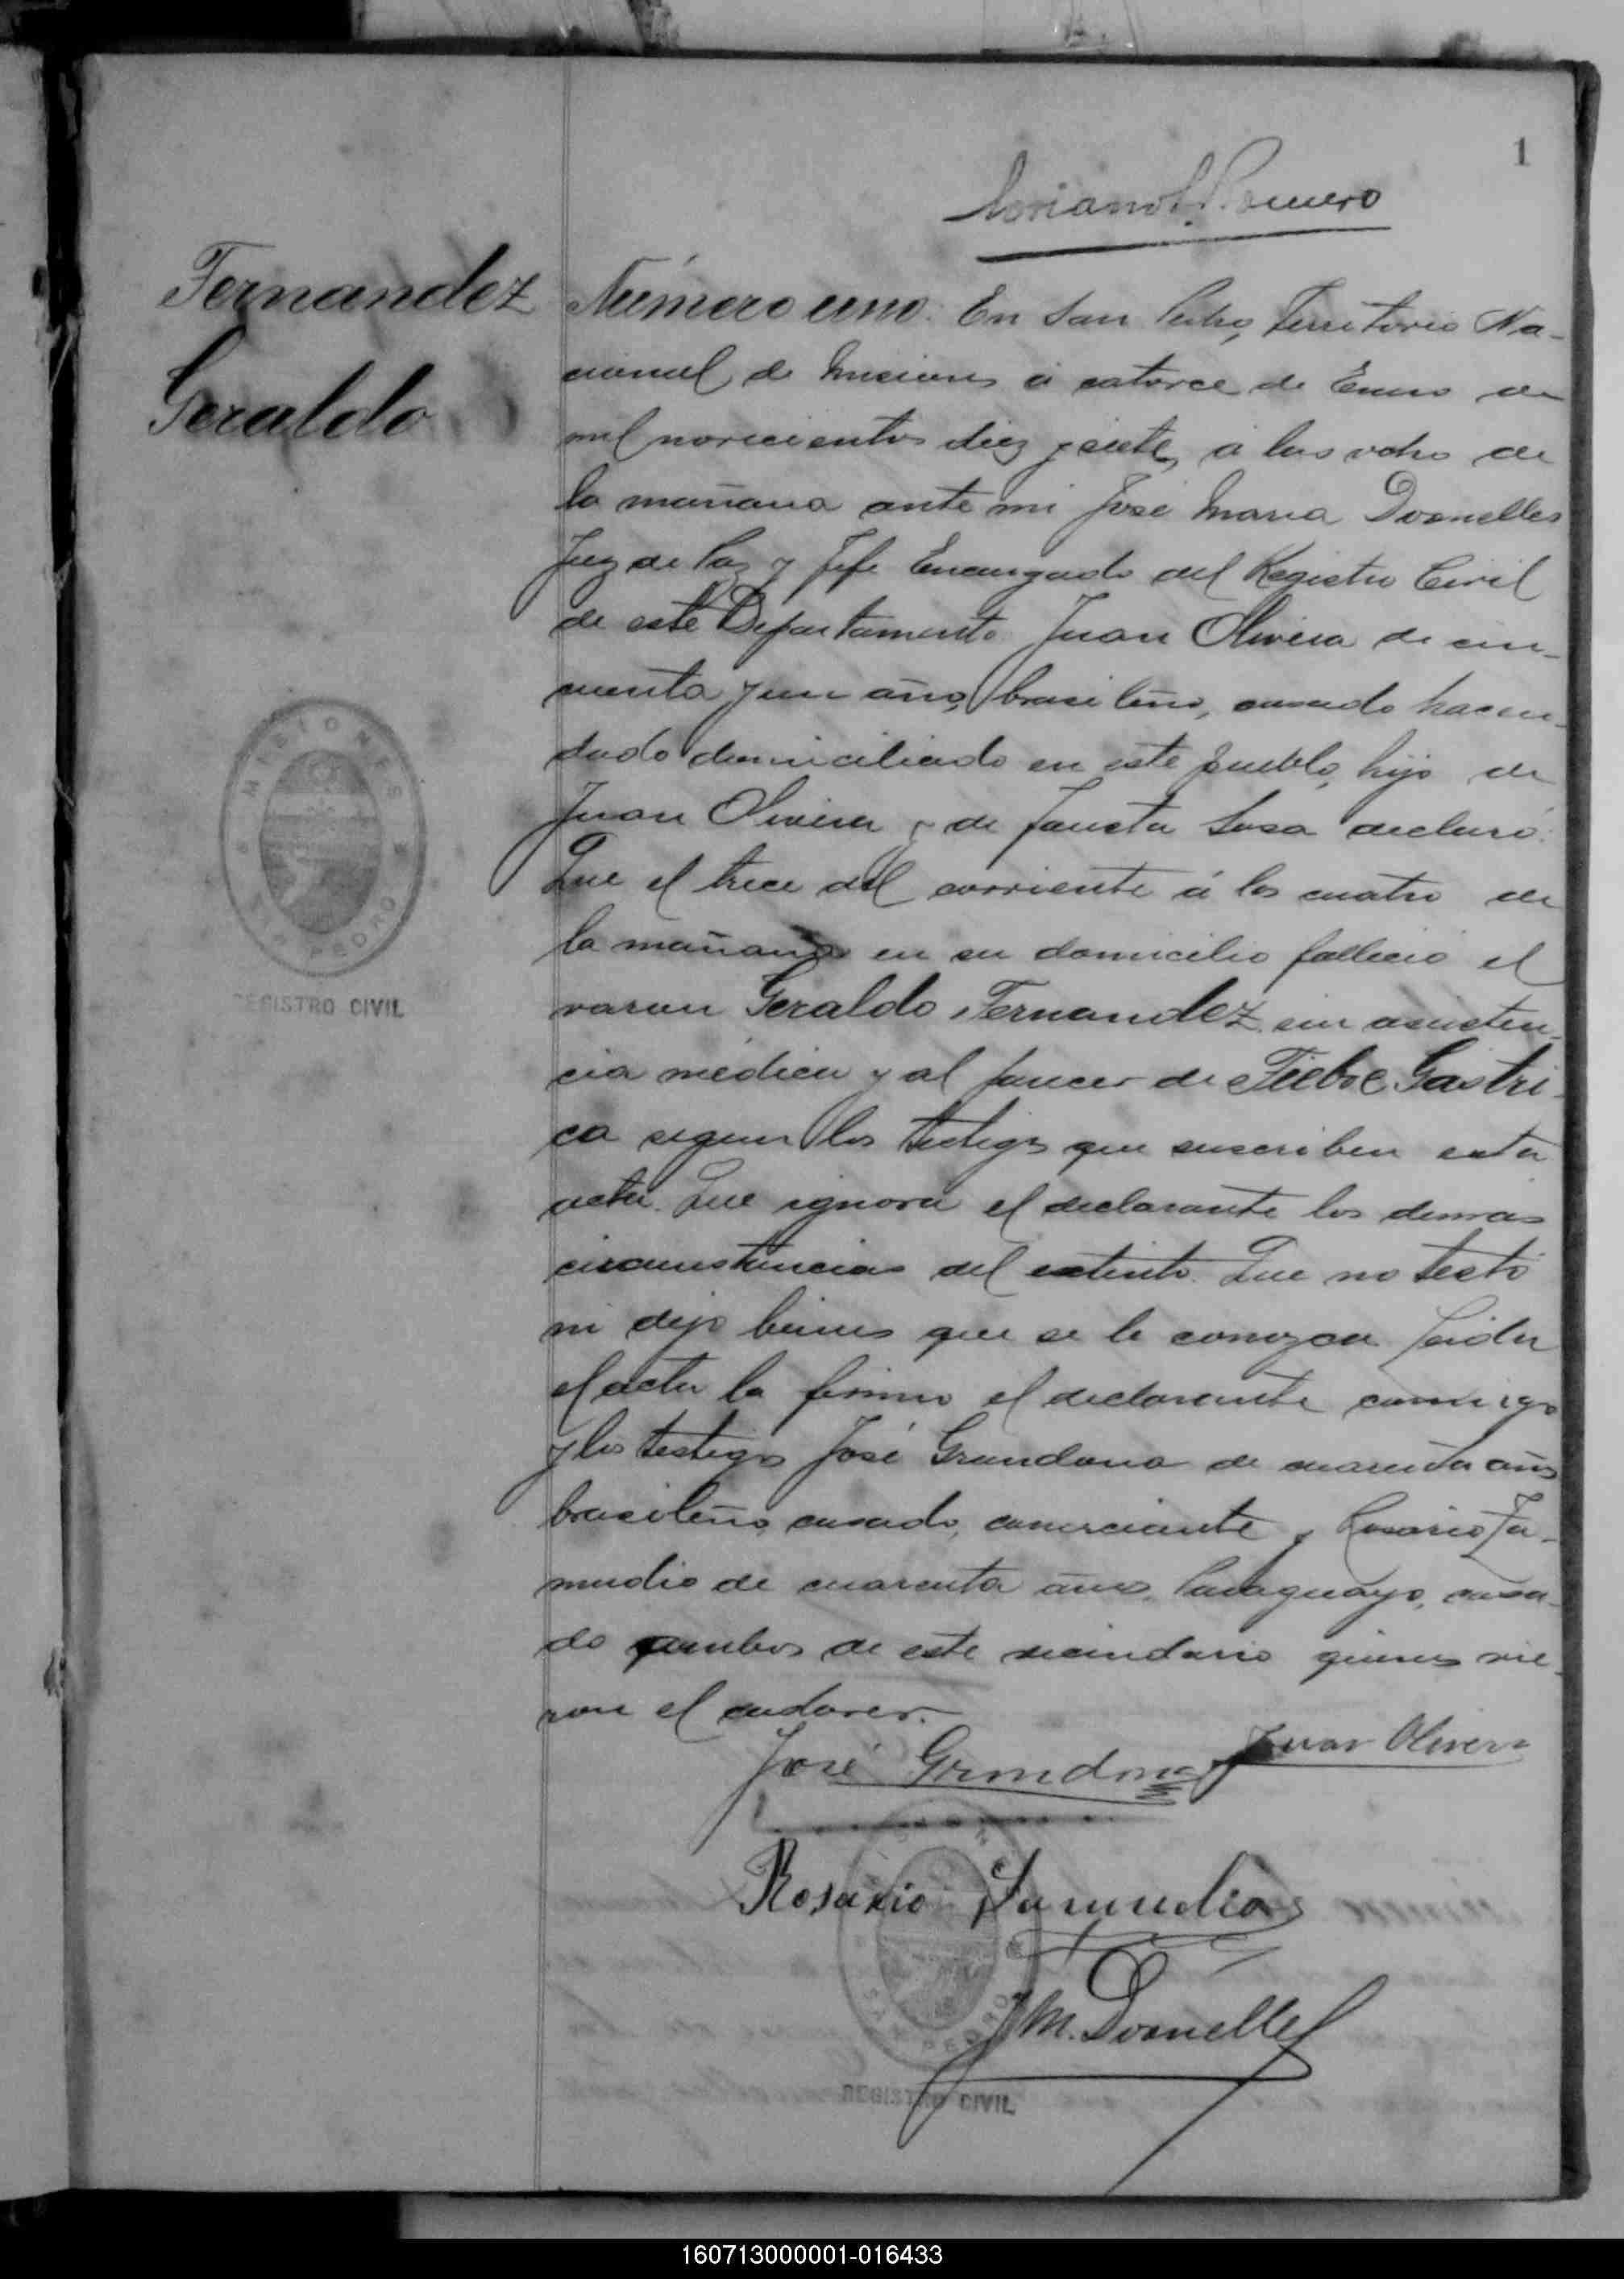 1
Romero
Fernandez
Geraldo
Número uno. En San Pedro, Territorio Na-
cional de Misiones á catorce de Enero de
mil novecientos diez y siete, á las ocho de
la mañana ante mi José Maria Dornelles
Juez de Paz y Jefe Encargado del Registro Civil
de este Departamento Juan Olivera de cin-
cuenta y un año, brasileño, casado hacen-
dado domiciliado en este pueblo, hijo de
Juan Olivera y de Fausta Sosa declaró:
Que el trece del corriente á las cuatro de
la mañana en su domicilio falleció el
varon Geraldo Fernandez sin asisten-
cia médica y al parecer de Fiebre Gastri-
ca segun los testigos que suscriben esta
acta. Que ignora el declarante las demas
circunstancias del extinto. Que no testó
ni dejo bienes que se le conozca Leida
el acta la firmó el declarante conmigo
y los testigos José Grandona de cuarenta años
brasileño, casado, comerciante y Rosario Za-
mudio de cuarenta años, Paraguayo, casa-
do ambos de este vecindario quienes vie-
ron el cadaver.
José Grondona Juan Olivera
Rosario Samudio
J M. Dornelles
MISIONES
SAN PEDRO
REGISTRO CIVIL
SAN PEDRO
REGISTRO CIVIL
160713000001-016433